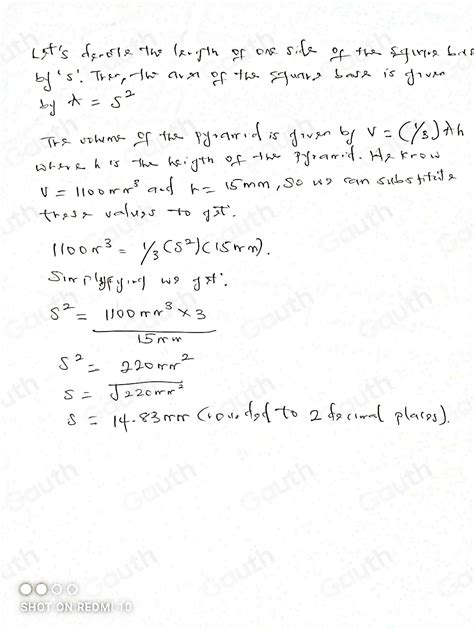 Let's denote the length of one side of the square bas
by 's'. Then, the area of the square base is given
by A = S²
The volume of the pyramid is given by V = (1/3)Ah
where h is the heigth of the pyramid. We know
V = 1100mm³ and h = 15mm, so we can substitute
these values to get.
1100m³ = 1/3 (S²)(15mm).
Simplyfying we get:
S² = 1100mm³ × 3
15mm
S² = 220mm²
S = √220mm²
S = 14.83mm (rounded to 2 decimal places).
Gauth
SHOT ON REDMI 10